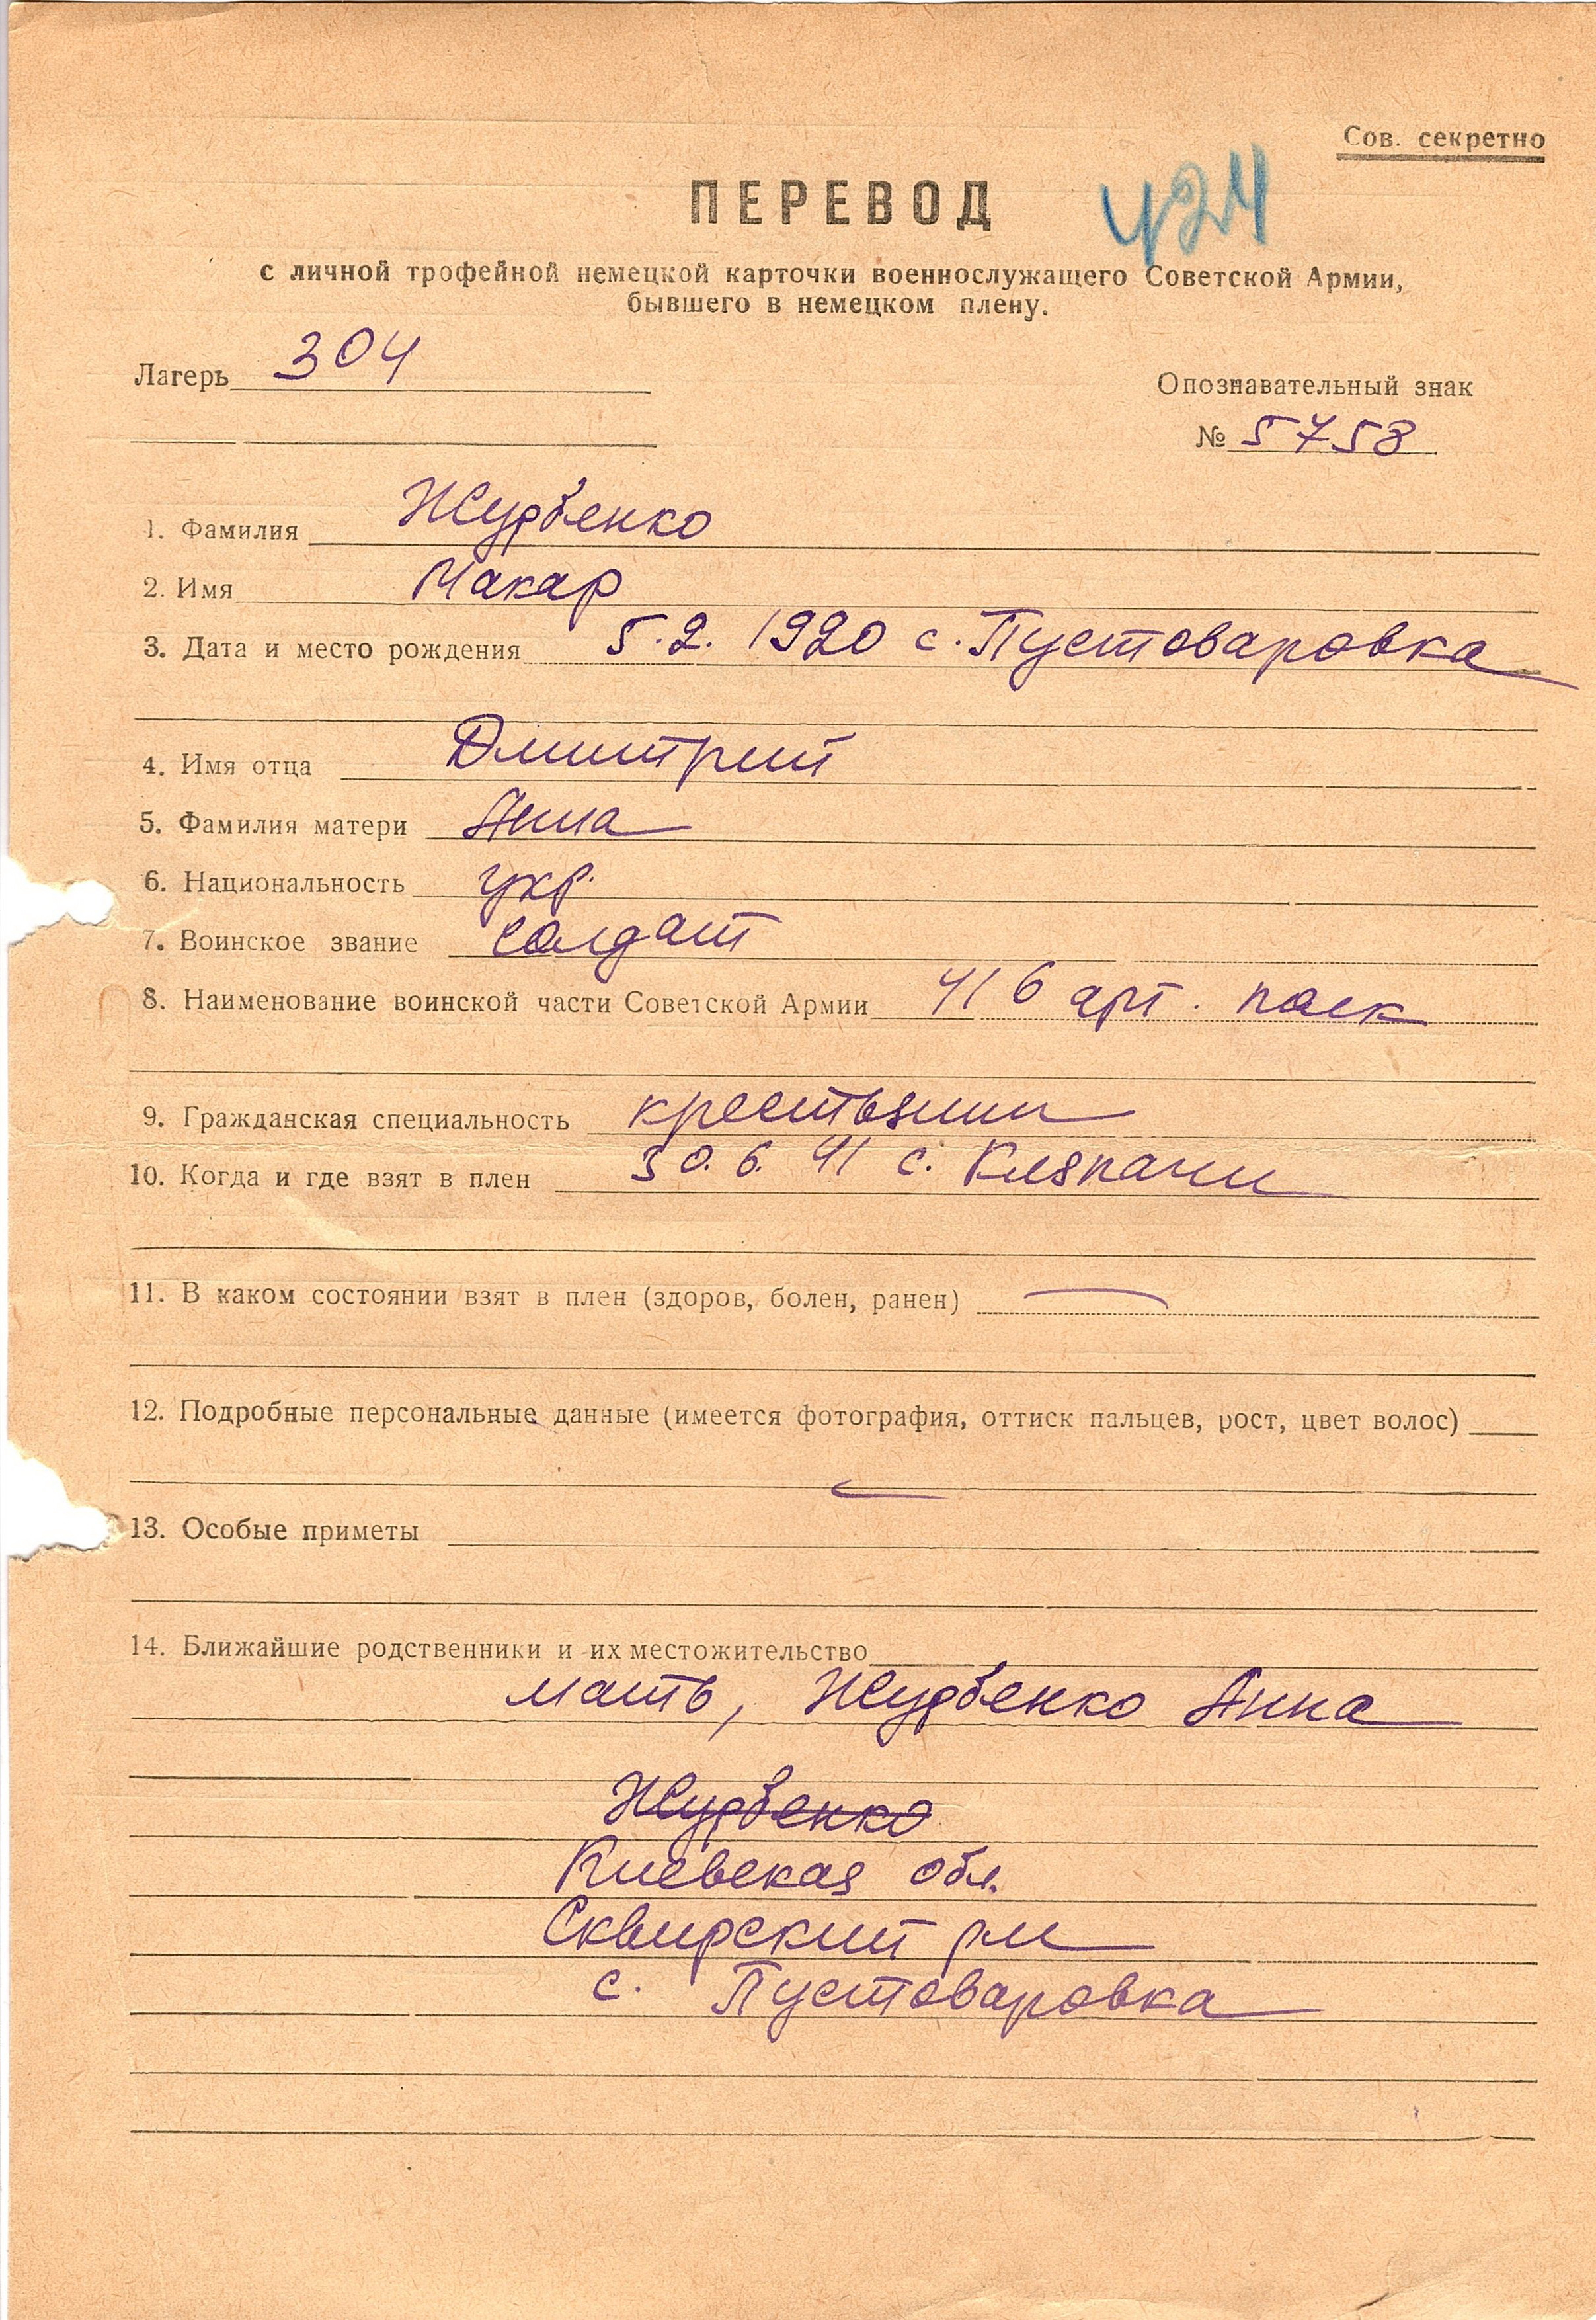 Сов. секретно
ПЕРЕВОД 424
с личной трофейной немецкой карточки военнослужащего Советской Армии,
бывшего в немецком плену.
Лагерь 304
Опознавательный знак
№ 5758
1. Фамилия Журбенко
2. Имя Макар
3. Дата и место рождения 5.2. 1920 с. Пустоваровка
4. Имя отца Дмитрий
5. Фамилия матери Анна
6. Национальность укр.
7. Воинское звание солдат
8. Наименование воинской части Советской Армии 416 арт. полк
9. Гражданская специальность крестьянин
10. Когда и где взят в плен 30.6.41 с. Кляпачи
11. В каком состоянии взят в плен (здоров, болен, ранен) —
12. Подробные персональные данные (имеется фотография, оттиск пальцев, рост, цвет волос)
—
13. Особые приметы
14. Ближайшие родственники и их местожительство
мать, Журбенко Анна
Журбенко
Киевская обл.
Сквирский р-н
с. Пустоваровка